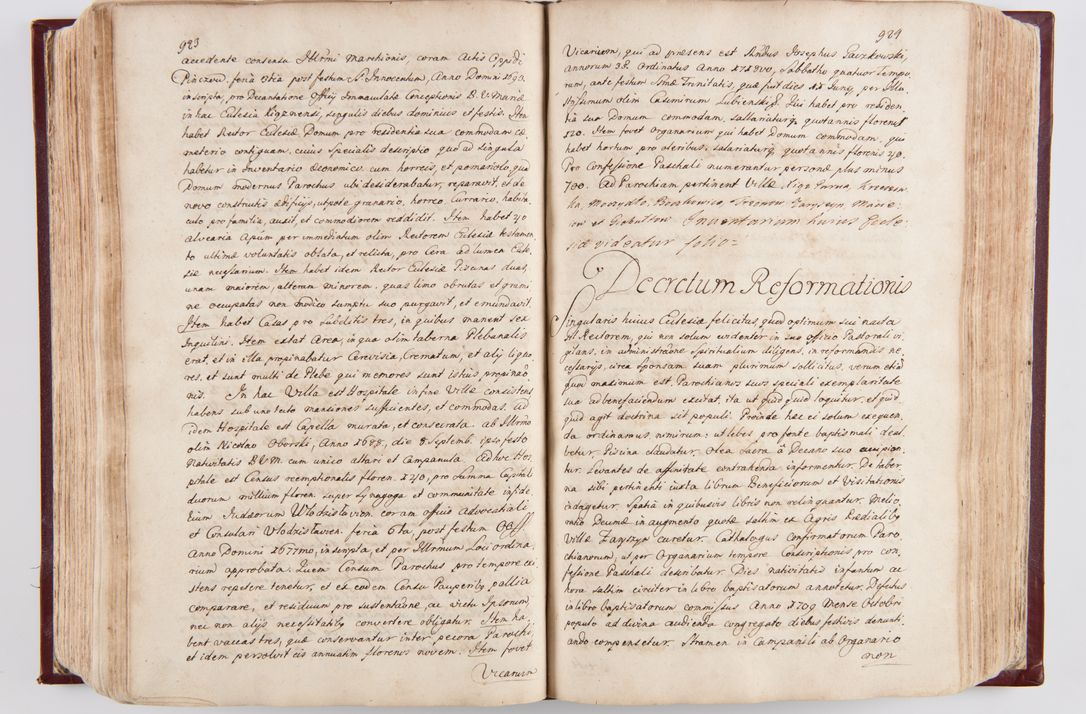 923
accedente consensu Illrmi Marchionis, coram Actis Oppidi
Pinczov. feria 6tia post festum SS. Innocentum, Anno Domini 1690.
inscripta, pro Decantatione Officij Immaculatæ Conceptionis B.V. Mariæ
in hac Ecclesia singulis diebus dominicis et festis. Item
habet Rector Ecclesiæ Domum pro residentia sua commodam cæ
meterio contiguam, cuius specialis descriptio quo ad singula
habetur in Inventario Œconomico, cum horreis, et pomariolo, quã
Domum modernus Parochus ubi desiderabatur, reparavit, et de
novo constructis ædificijs, utpote granario, horreo, Currarco, habita
culo pro familia, auxit, et commodiorem reddidit. Item habet 40
alvearia Apium per immediatum olim Rectorem Ecclesiæ testamen
to ultimæ voluntatis oblata, et relicta, pro Cera ad lumen Eccle
siæ necessarium. Item habet idem Rector Ecclesiæ Piscinas duas,
unam maiorem, alteram minorem, quas limo obrutas et grami
ne occupatas non modico sumptu suo purgavit, et emundavit.
Item habet Casas pro Subditis tres, in quibus manent sex
Inquilini. Item extat Area, in qua olim taberna Plebanalis
erat, et in illa propinabatur Cerevisia, Crematum, et alij liquo
res, et sunt multi de Plebe qui memores sunt istius propinaõ
nis. In hac Villa est Hospitale in fine Villæ consistens
habens sub uno tecto mansiones sufficientes, et commodas. ad
idem Hospitale est Capella murata, et consecrata ab Illrmo
olim Nicolao Oborski, Anno 1688, die 8 Septemb. ipso festo
Nativitatis B.V.M. cum unico altari et Campanula. Ad hoc Hos
pitale est Census reemptionalis floren. 140, pro summa Capitali
duorum millium floren. super Synagoga et communitate infide
lium Judæorum Wlodzislavien. coram officio Advocatiali
et Consulari Vlodzislavien. feria 6ta, post festum
Anno Domini 1677mo, inscripta, et per Illrmum Loci ordina
rium approbata. Quem Censum Parochus pro tempore exi
stens repetere tenetur, et ex eodem Censu Pauperibq pallia
comparare, et residuum pro sustentaõne, ac victu Ipsorum,
nec non alijs necessitatibq convertere obligatur. Item ha
bent vaccas tres, quæ conservantur inter pecora Parochi,
et idem persolvit eis annuatim florenos novem. Item fovet
Vicarium
924
Vicarium, qui ad præsens est Andus Josephus Paczkowski,
annorum 38. Ordinatus Anno 17 Sabbatho quatuor tempo
rum, ante festum Smæ Trinitatis, quæ fuit dies 11 Junij, per Illu
strissimum olim Casimirum Lubienski. Qui habet pro residen
tia sua Domum commodam, sallariaturq quotannis florenis
120. Item fovet Organarium qui habet Domum commodam, qui
habet hortum pro oleribus, salariaturq quotannis florenis 40.
Pro Confessione Paschali numerantur personæ plus minus
700. Ad Parochiam pertinent Villæ,
Inventarium huius Eccle
siæ videatur folio=
Decretum Reformationis
Singularis huius Ecclesiæ felicitas, quod optimum sui nacta
sit Rectorem, qui non solum evidenter in suo officio Pastorali vi
gilans, in administraõne Spiritualium diligens, in reformandis ne
cessarijs, circa Sponsam suam plurimum sollicitus, verum etiã
quod maximum est, Parochianos suos speciali exemplaritate
sua ad benefaciendum excitat, ita ut quid quid loquitur, et quid
quid agit doctrina sit populi. Proinde hæc ei solum exequen
da ordinamus, nimirum: ut lebes pro fonte baptismali deal
betur. Piscina claudatur. Olea sacra â Decano suo accipian
tur. Levantes de affinitate contrahenda informentur. De taber
na sibi pertinenti iuxta librum Beneficiorum et Visitationis
indagetur. Spatia in quibusvis libris non relinquantur. Melio
ratio Decimæ in augmento quotæ saltim ex Agris Prædialibq
Villæ Zaryszyn curetur. Cathalogus confirmatorum Paro
chianorum, ut per Organarium tempore Conscriptionis pro con
fessione Paschali describatur. Dies nativitatis infantum ac
hora saltim circiter in libro baptisatorum annotetur. Defectus
in libro baptisatorum commissus Anno 1709 Mense Octobri
populo ad divina audienda congregato diebus festivis denunti
ando compensetur. Stramen in Campanili ab Organario
non